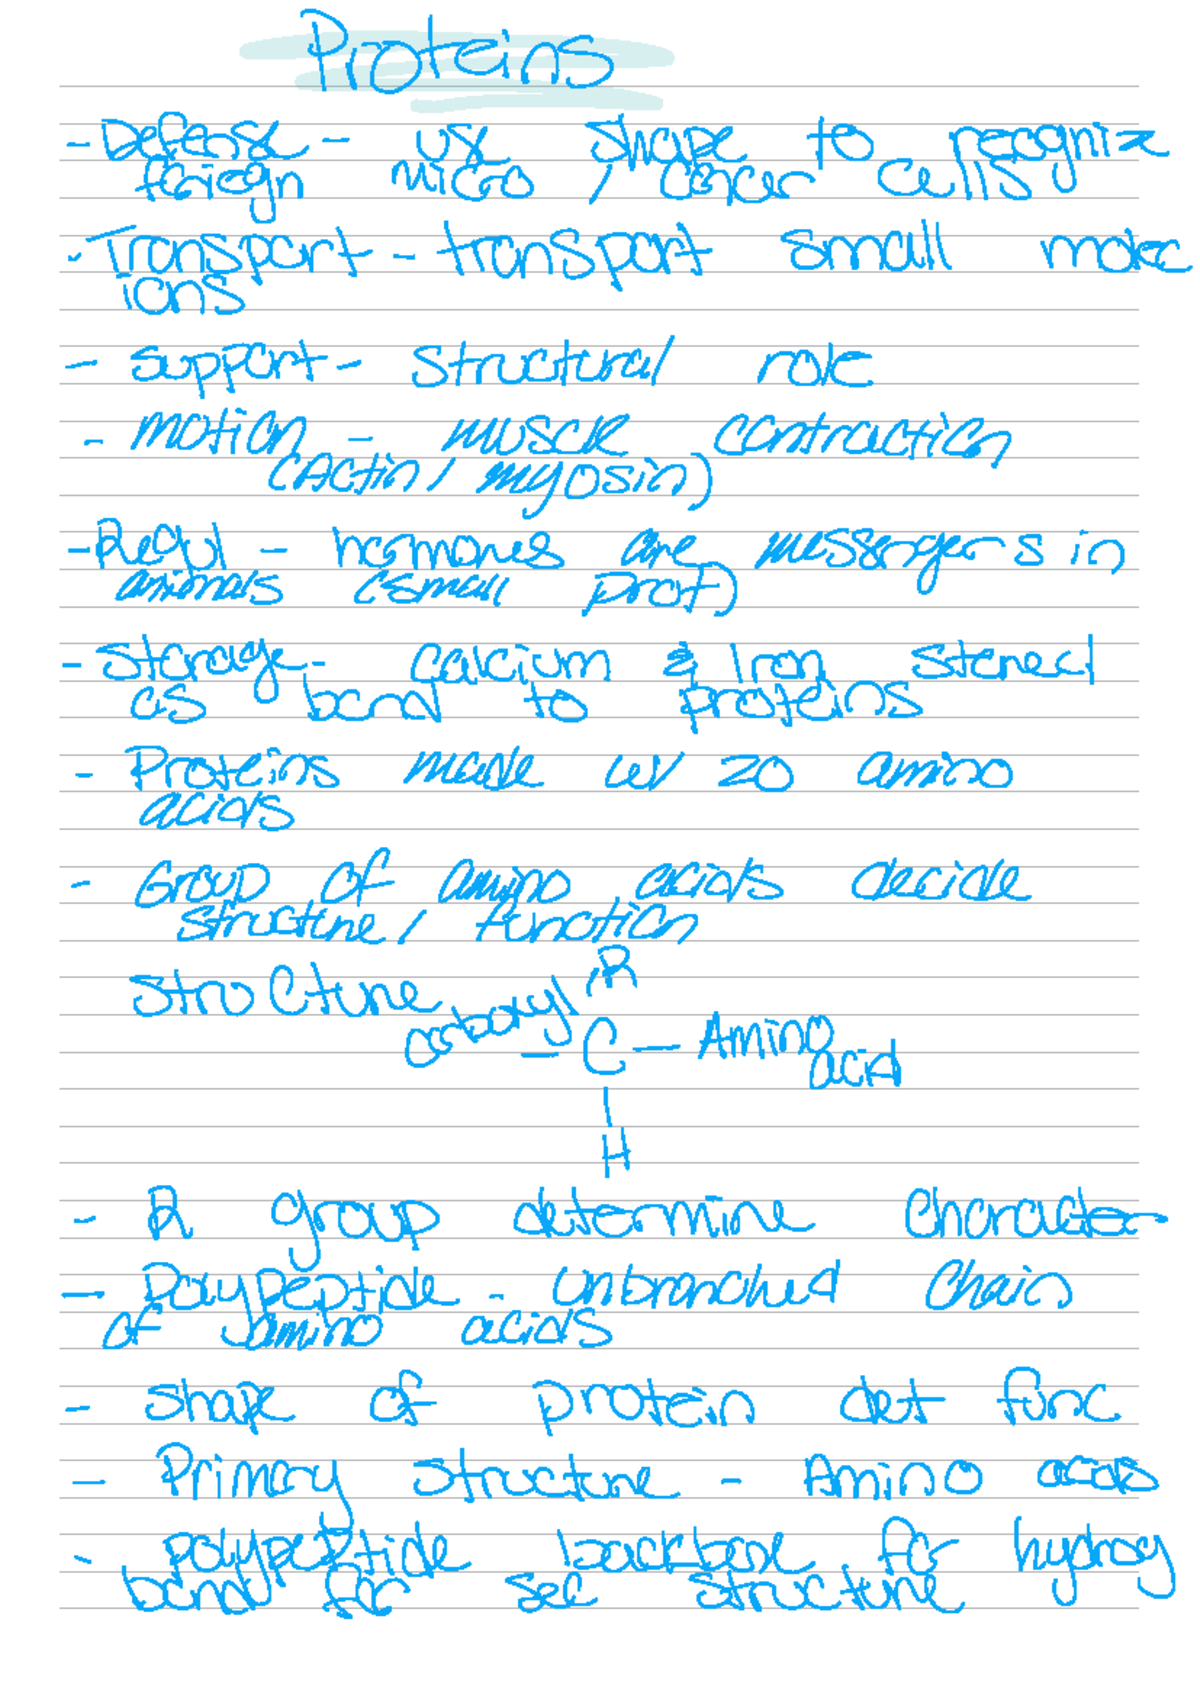 Proteins
- Defense - use shape to recognize
foriegn micro / cancer cells
- Transport - transport small molec
ions
- support - structural role
- motion - muscle contraction
(Actin / myosin)
- Regul - hormones are messengers in
animals (small prot)
- Storage - calcium & Iron stored
as bond to proteins
- Proteins made w/ 20 amino
acids
- Group of amino acids decide
structure / function
Structure
R
carboxyl - C - Amino
acid
H
- R group determine character
- Polypeptide - unbranched chain
of amino acids
- shape of protein det func
- Primary structure - Amino acids
- polypeptide backbone for hydrog
bond for sec structure